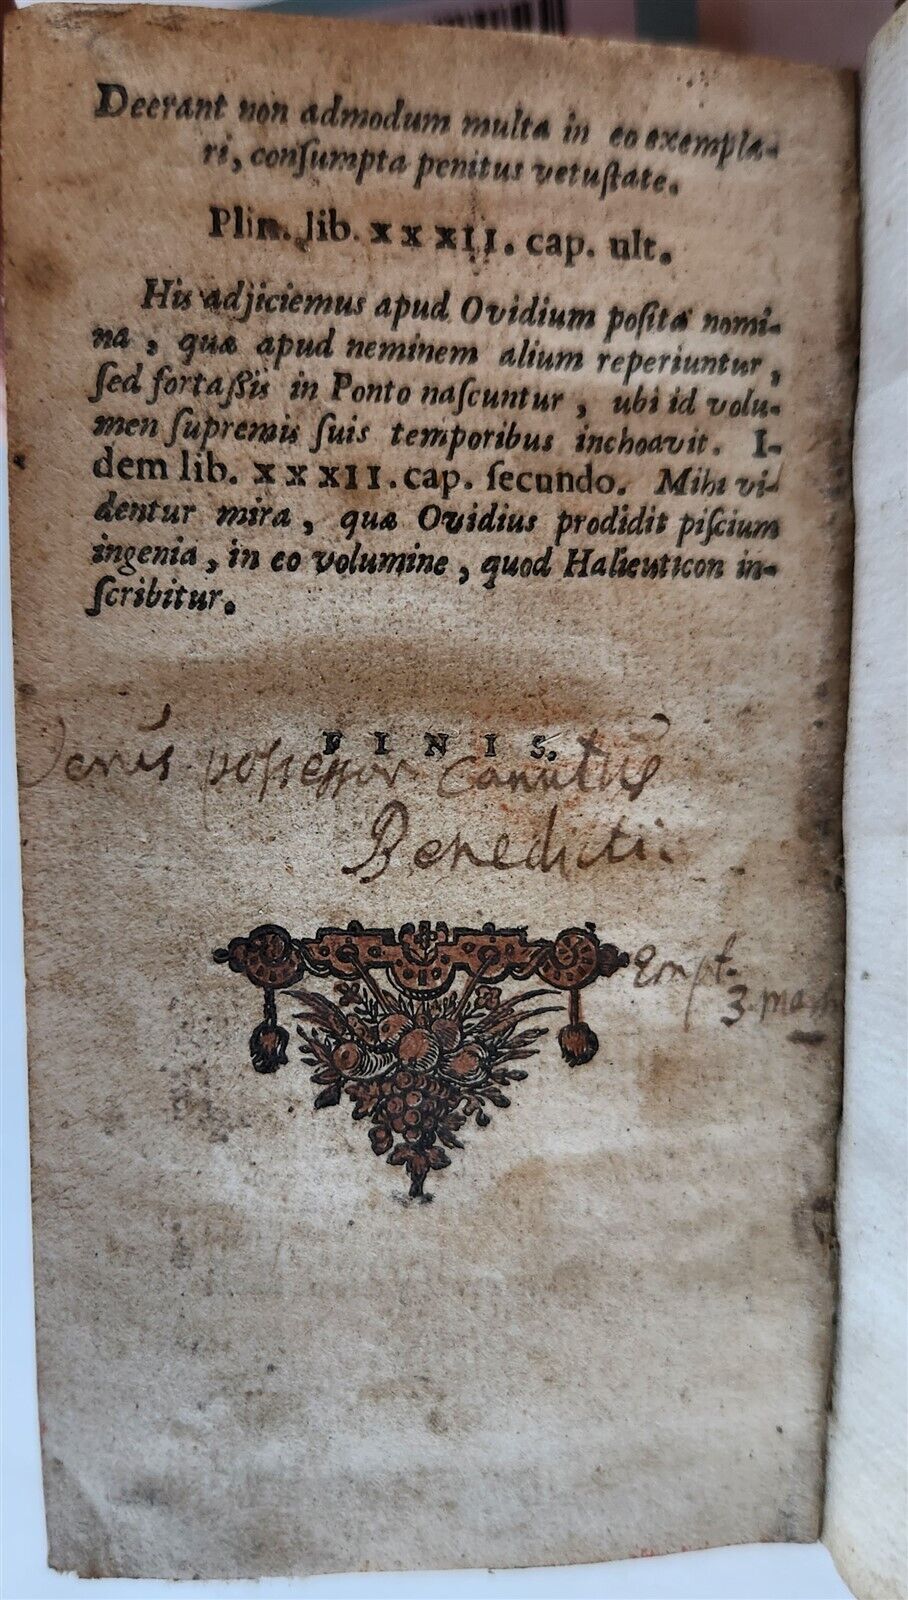 Deerant non admodum multa in eo exempla-
ri, conſumpta penitus vetuſtate.
Plin. lib. XXXII. cap. ult.
His adjiciemus apud Ovidium poſita nomi-
na, quæ apud neminem alium reperiuntur,
ſed fortaßis in Ponto naſcuntur, ubi id volu-
men ſupremis ſuis temporibus inchoavit. I-
dem lib. XXXII. cap. ſecundo. Mihi vi-
dentur mira, quæ Ovidius prodidit piſcium
ingenia, in eo volumine, quod Halieuticon in-
ſcribitur.
FINIS.
Verus possessor Canutus
Benedicti.
Empt.
3.